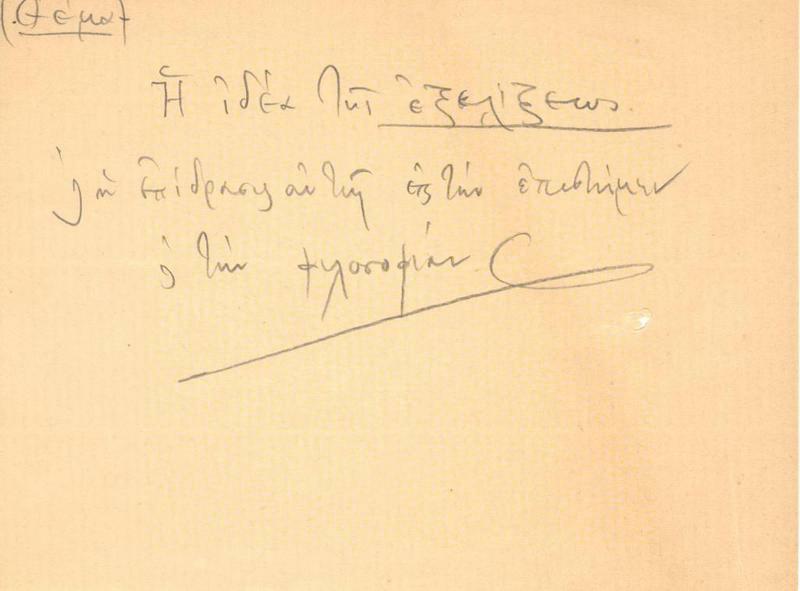 (Θέμα)
Ἡ ἰδέα τῆς ἐξελίξεως.
ϗ ἡ ἐπίδρασις αὐτῆς εἰς τὴν ἐπιστήμην
ϗ τὴν φιλοσοφίαν